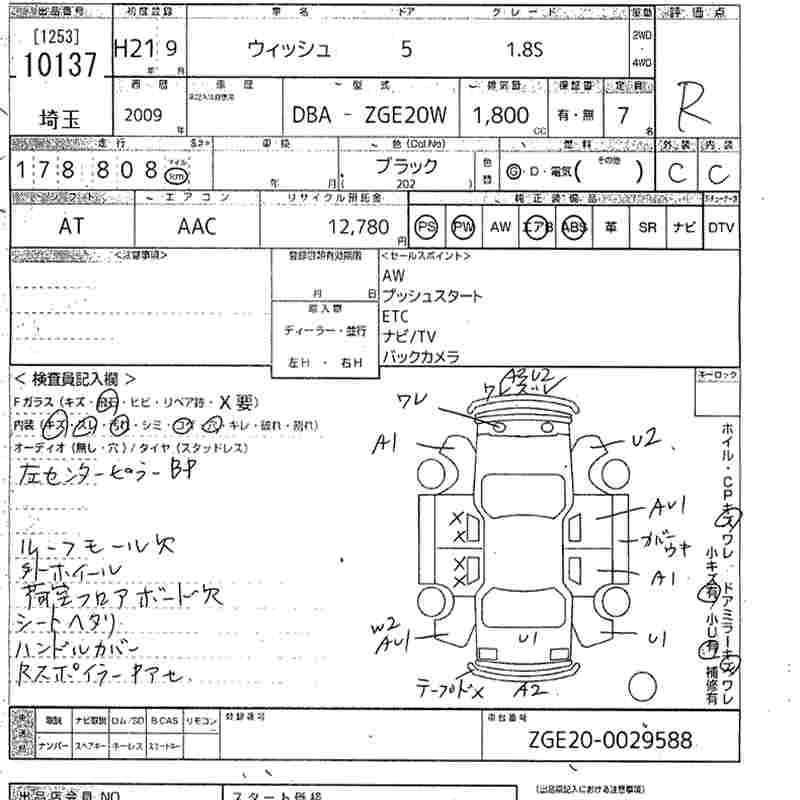 出品番号 初度登録 車名 ドア グレード 駆動 評価点
[1253]
10137
埼玉
H21 9
年 月
ウィッシュ 5 1.8S
2WD
・
4WD
R
西暦 車歴 型式 排気量 保証書 定員
2009 年
DBA - ZGE20W
1,800 CC
有・無
7 名
走行 車検 色(Col No) 燃料 外装 内装
178808 マイル km
年 月
ブラック
( 202 )
色替
G・D・電気( その他 )
C C
シフト エアコン リサイクル預託金 純正装備品
AT AAC 12,780 円
PS PW AW エアB ABS 革 SR ナビ DTV
<注意事項> 登録書類有効期限 <セールスポイント>
月 日
輸入車
ディーラー・並行
左H ・ 右H
AW
プッシュスタート
ETC
ナビ/TV
バックカメラ
< 検査員記入欄 >
Fガラス(キズ・飛石・ヒビ・リペア跡・X要)
内装(キズ・スレ・汚れ・シミ・コゲ・穴・キレ・破れ・割れ)
オーディオ(無し・穴)/タイヤ(スタッドレス)
左センターピラーBP
ルーフモール欠
外ホイール
荷室フロアボード欠
シートヘタリ
ハンドルカバー
Rスポイラー
キーロック
A3 U2
ワレ ズレ
ワレ
A1
U2
X
X
X
X
AU1
カバーウキ
A1
W2
AU1
U1
U1
A2
ホイル・CPキズワレ ドアミラーキズワレ
小キズ有 小U有 補修有
取説 ナビ取説 ロム/SD B-CAS リモコン
ナンバー スペアキー キーレス スマートキー
登録番号
車台番号
ZGE20-0029588
出品店会員NO スタート価格 (出品票記入における注意事項)